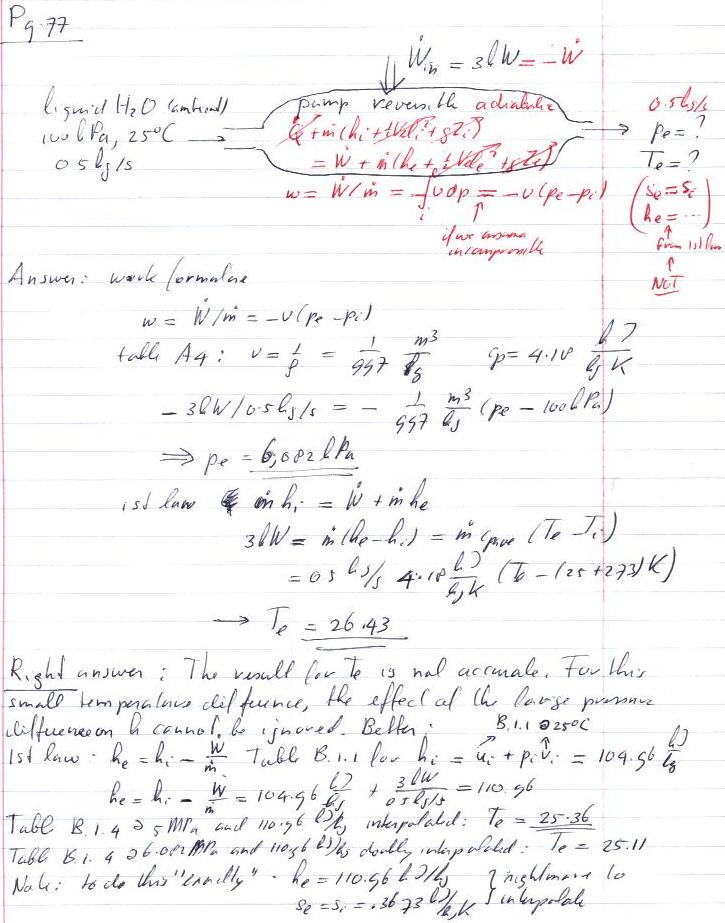 Pg. 77
Ẇin = 3 kW = -Ẇ
liquid H2O (ambient)
100 kPa, 25°C
0.5 kg/s
pump reversible adiabatic
Q̇ + ṁ(hi + ½Veli² + gZi)
= Ẇ + ṁ(he + ½Vele² + gZe)
w = Ẇ/ṁ = -∫i^e v dp = -v(pe - pi)
if we assume
incompressible
0.5 kg/s
pe = ?
Te = ?
(se = si
he = ...)
from 1st law
NOT
Answer: work formulae
w = Ẇ/ṁ = -v(pe - pi)
table A4: v = 1/ρ = 1/997 m³/kg   cp = 4.18 kJ/kg K
- 3 kW/0.5 kg/s = - 1/997 m³/kg (pe - 100 kPa)
⇒ pe = 6,082 kPa
1st law ṁ hi = Ẇ + ṁ he
3 kW = ṁ(he - hi) = ṁ cp,ave (Te - Ti)
= 0.5 kg/s 4.18 kJ/kg K (Te - (25+273) K)
→ Te = 26.43
Right answer: The result for Te is not accurate. For this
small temperature difference, the effect of the large pressure
difference on h cannot be ignored. Better:
B.1.1 @ 25°C
1st law: he = hi - Ẇ/ṁ Table B.1.1 for hi = ui + pi vi = 104.96 kJ/kg
he = hi - Ẇ/ṁ = 104.96 kJ/kg + 3 kW/0.5 kg/s = 110.96
Table B.1.4 @ 5 MPa and 110.96 kJ/kg interpolated: Te = 25.36
Table B.1.4 @ 6.082 MPa and 110.96 kJ/kg doubly interpolated: Te = 25.11
Note: to do this "exactly": he = 110.96 kJ/kg } nightmare to
se = si = .3673 kJ/kg K } interpolate